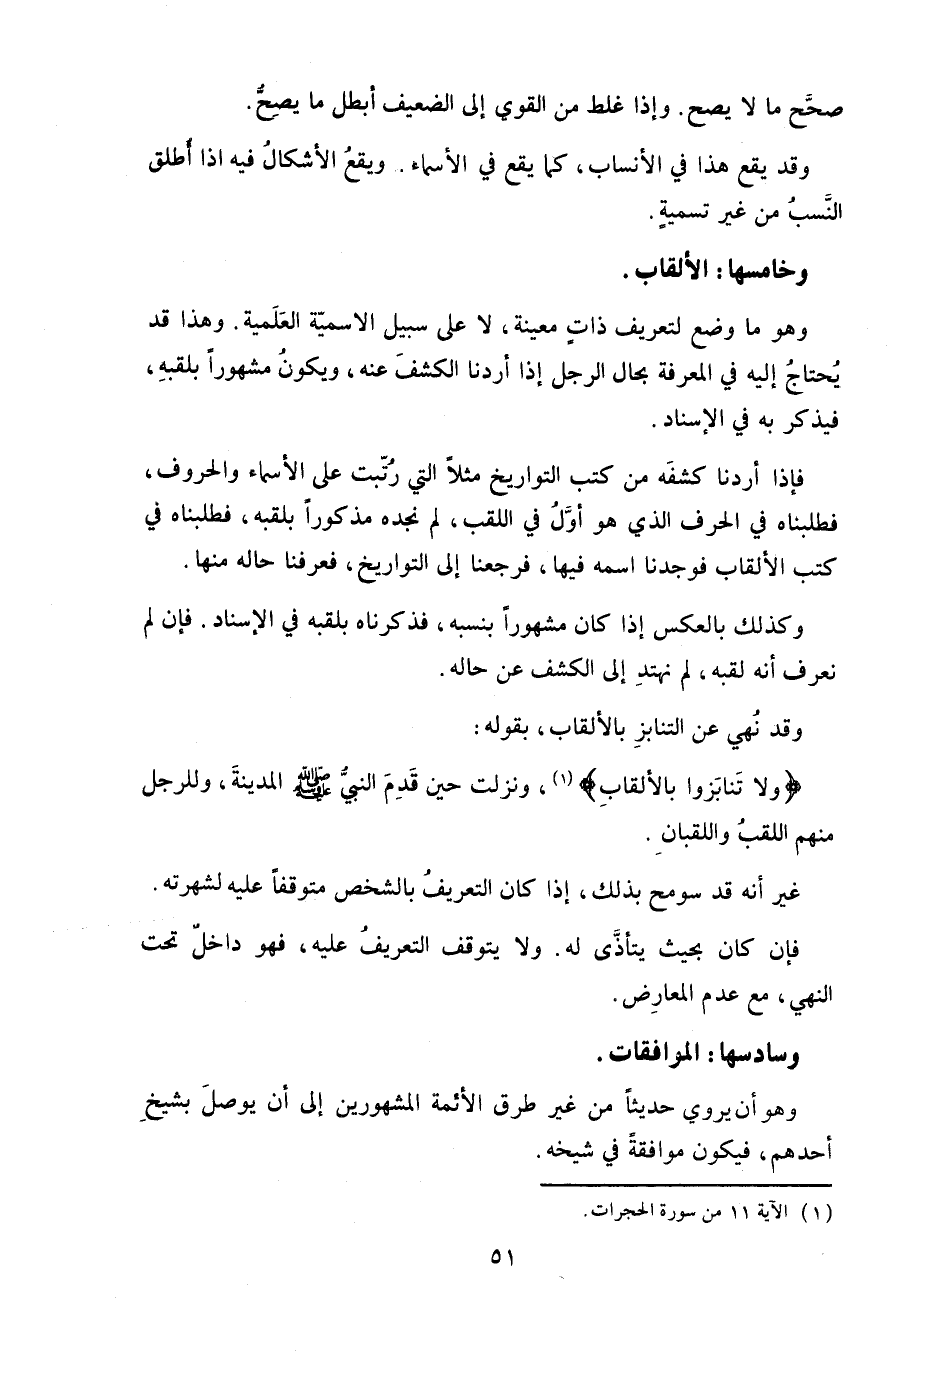 صحَّح ما لا يصح. وإذا غلط من القوي إلى الضعيف أبطل ما يصحُّ.
وقد يقع هذا في الأنساب، كما يقع في الأسماء. ويقعُ الأشكالُ فيه اذا أُطلق
النَّسبُ من غير تسميةٍ.
وخامسها: الألقاب.
وهو ما وضع لتعريف ذاتٍ معينة، لا على سبيل الاسميّة العَلَمية. وهذا قد
يُحتاجُ إليه في المعرفة بحال الرجل إذا أردنا الكشفَ عنه، ويكونُ مشهوراً بلقبهِ،
فيذكر به في الإسناد.
فإذا أردنا كشفَه من كتب التواريخ مثلاً التي رُتّبت على الأسماء والحروف،
فطلبناه في الحرف الذي هو أوَّلُ في اللقب، لم نجده مذكوراً بلقبه، فطلبناه في
كتب الألقاب فوجدنا اسمه فيها، فرجعنا إلى التواريخ، فعرفنا حاله منها.
وكذلك بالعكس إذا كان مشهوراً بنسبه، فذكرناه بلقبه في الإسناد. فإن لم
نعرف أنه لقبه، لم نهتدِ إلى الكشف عن حاله.
وقد نُهي عن التنابزِ بالألقاب، بقوله:
﴿ولا تَنابَزوا بالألقابِ﴾(١)، ونزلت حين قَدِمَ النبيُّ ﷺ المدينةَ، وللرجل
منهم اللقبُ واللقبانِ.
غير أنه قد سومح بذلك، إذا كان التعريفُ بالشخص متوقفاً عليه لشهرته.
فإن كان بحيث يتأذَّى له. ولا يتوقف التعريفُ عليه، فهو داخلٌ تحت
النهي، مع عدم المعارِض.
وسادسها: الموافقات.
وهو أن يروي حديثاً من غير طرق الأئمة المشهورين إلى أن يوصلَ بشيخِ
أحدهم، فيكون موافقةً في شيخه.
(١) الآية ١١ من سورة الحجرات.
٥١